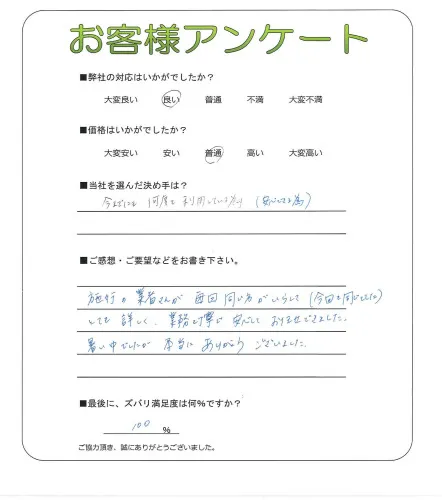 お客様アンケート
■弊社の対応はいかがでしたか？
大変良い 良い 普通 不満 大変不満
■価格はいかがでしたか？
大変安い 安い 普通 高い 大変高い
■当社を選んだ決め手は？
今までにも 何度も 利用している為 (安心できる為)
■ご感想・ご要望などをお書き下さい。
施行の 業者さんが 毎回 同じ方がいらして (今回も同じでした)
とても 詳しく、業務も丁寧で 安心して お任せできました。
暑い中でしたが 本当に ありがとう ございました。
■最後に、ズバリ満足度は何％ですか？
100 ％
ご協力頂き、誠にありがとうございました。